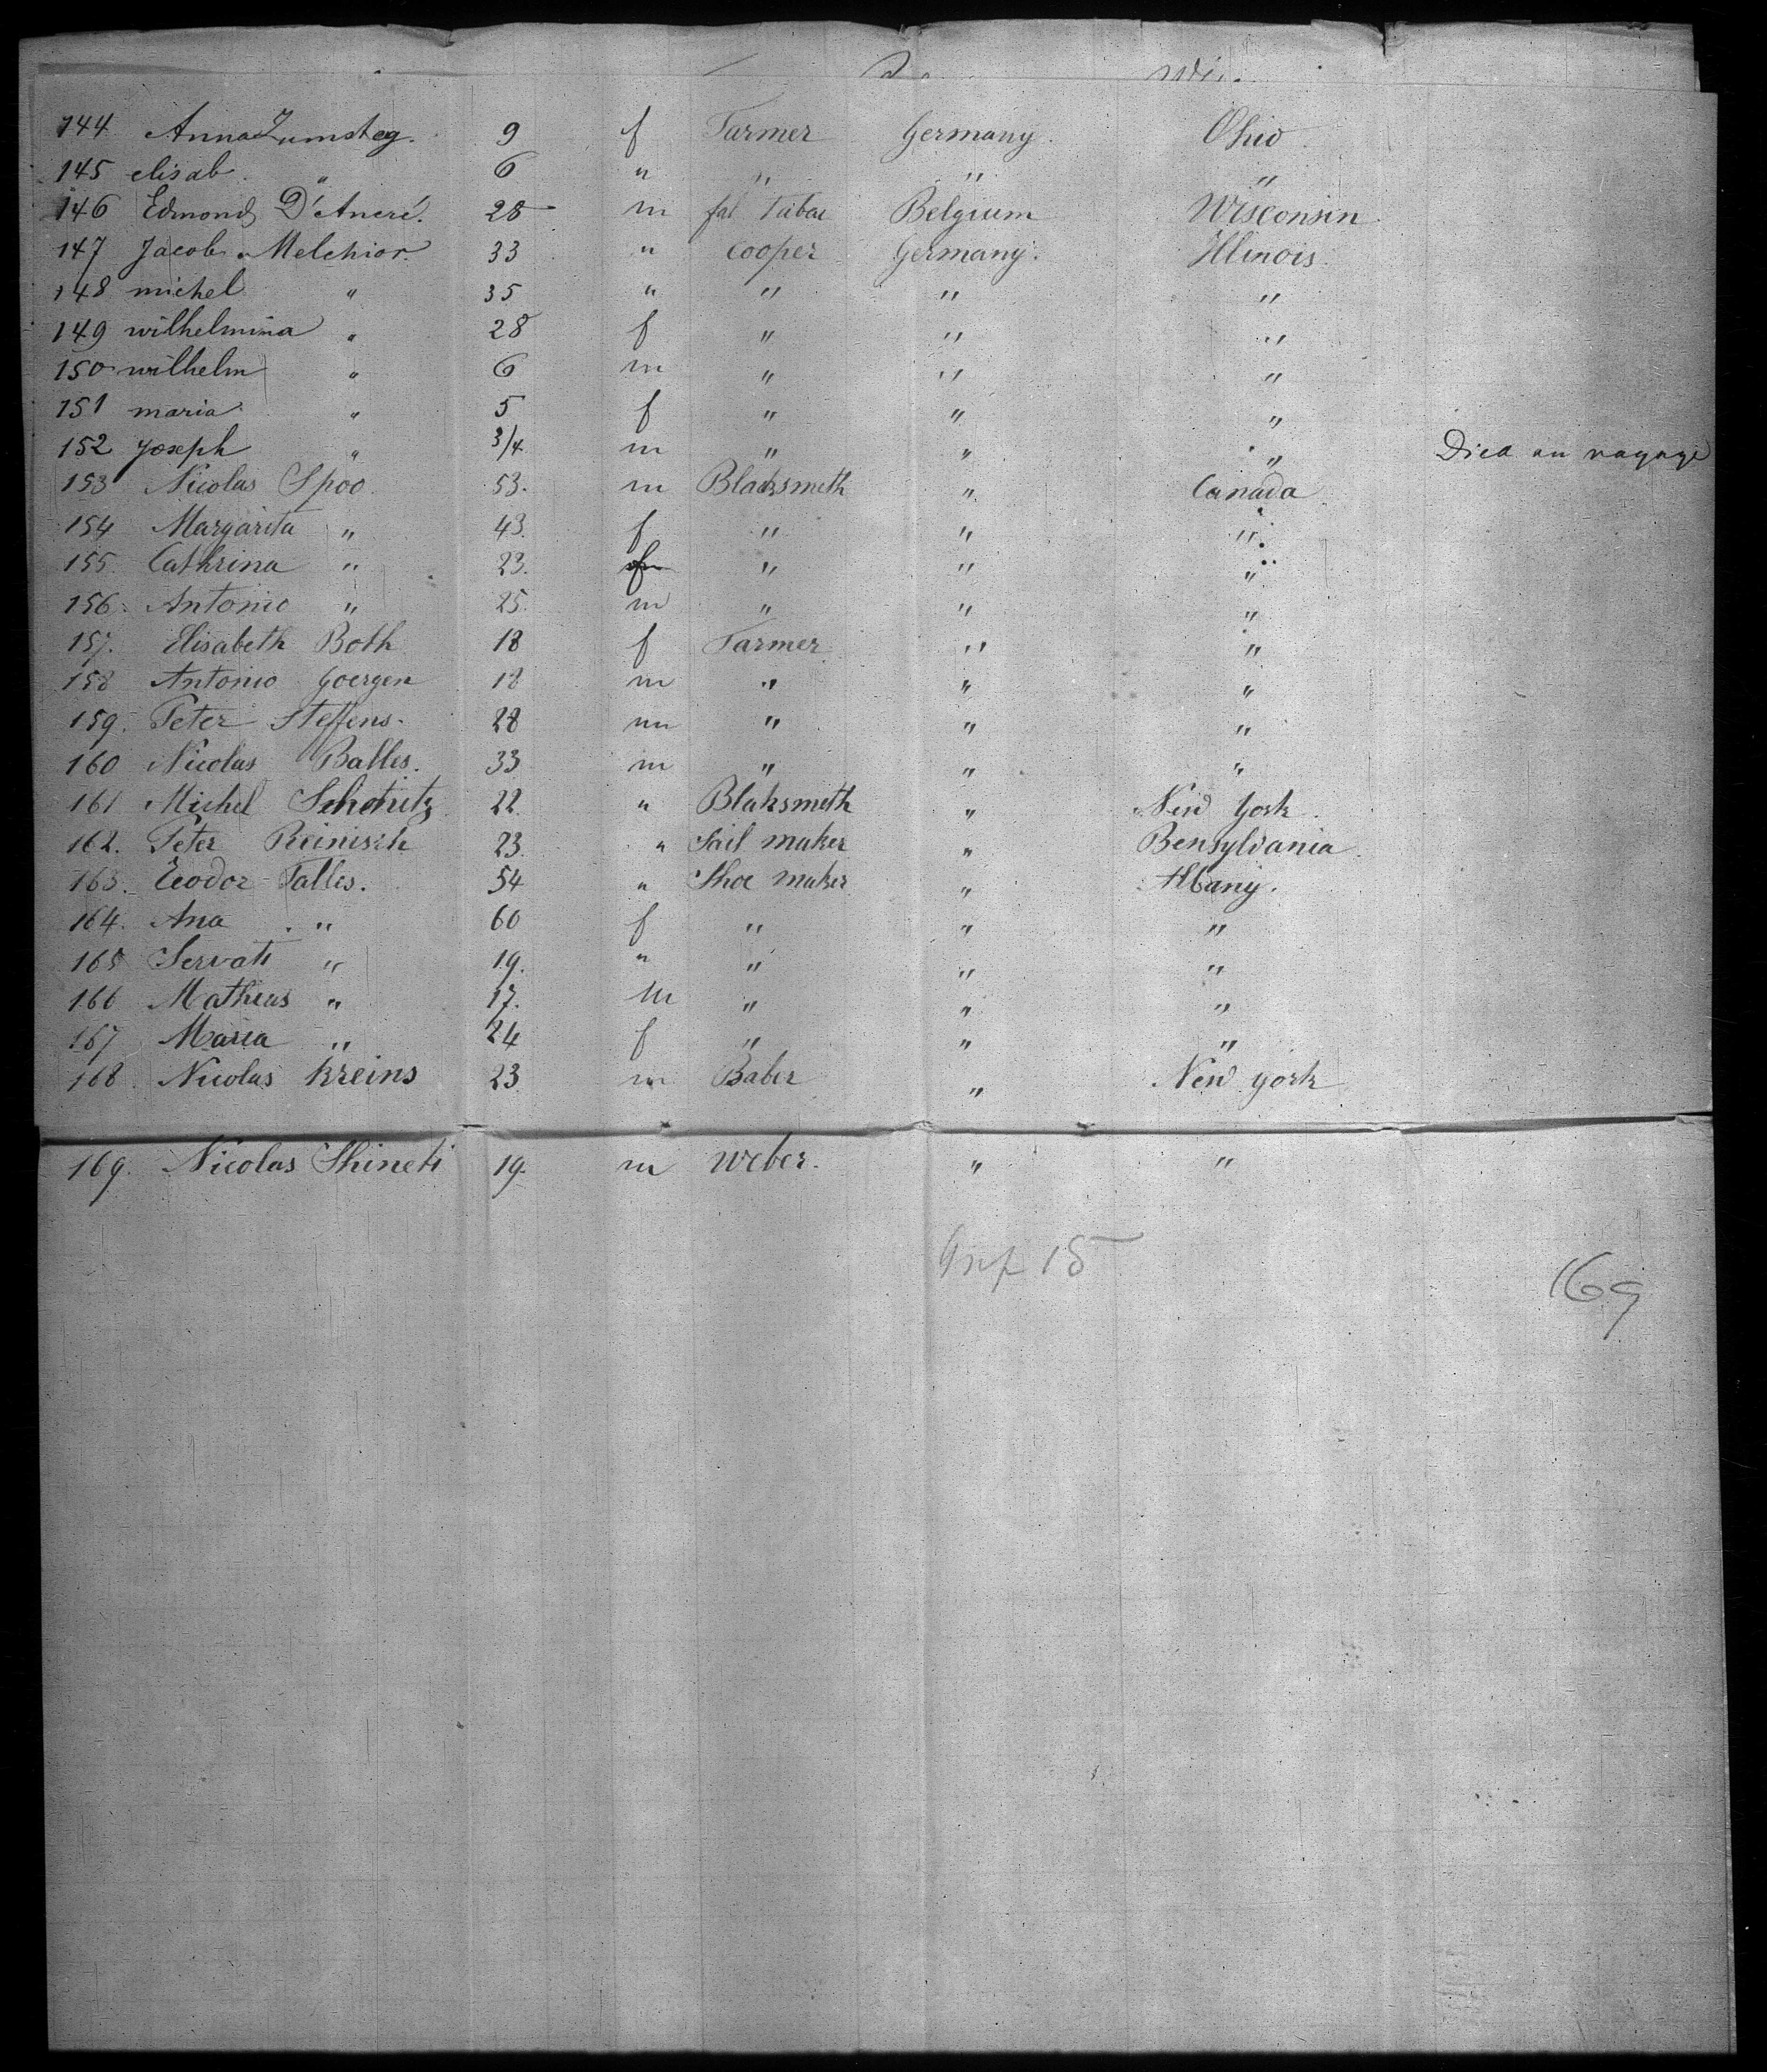 144 Anna Zumsteg. 9 f Farmer Germany. Ohio.
145 elisab. " 6 " " " "
146 Edmond D'Aneré. 28 m fal Tabac Belgium Wisconsin.
147 Jacob Melchior. 33 " Cooper Germany. Illinois.
148 michel " 35 " " " "
149 wilhelmina " 28 f " " "
150 wilhelm " 6 m " " "
151 maria " 5 f " " "
152 Joseph " 3/4 m " " " Died on vagage
153 Nicolas Spoo. 53. m Blacksmeth " Canada
154 Margarita " 43. f " " "
155. Cathrina " 23. f " " "
156. Antonio " 25. m " " "
157. Elisabeth Both 18 f Farmer " "
158 Antonio Goergen 18 m " " "
159. Peter Steffens. 28 m " " "
160 Nicolas Balles. 33 m " " "
161 Michel 22. " Blaksmeth " New York.
162. Peter Reinisch 23. " Sail maker " Bensylvania.
163. Teodor Talles. 54 " Shoe maker " Albany.
164. Ana " 60 f " " "
165 Servati " 19. " " " "
166 Matheas " 17. m " " "
167 Maria " 24 f " " "
168. Nicolas Kreins 23 m Baber " New york
169. Nicolas Shineti 19. m Weber. " "
Inf 15
169